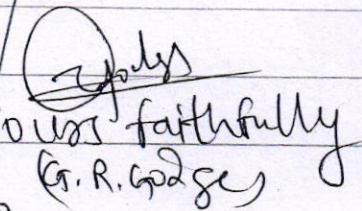 ours faithfully
(G. R. Godge)